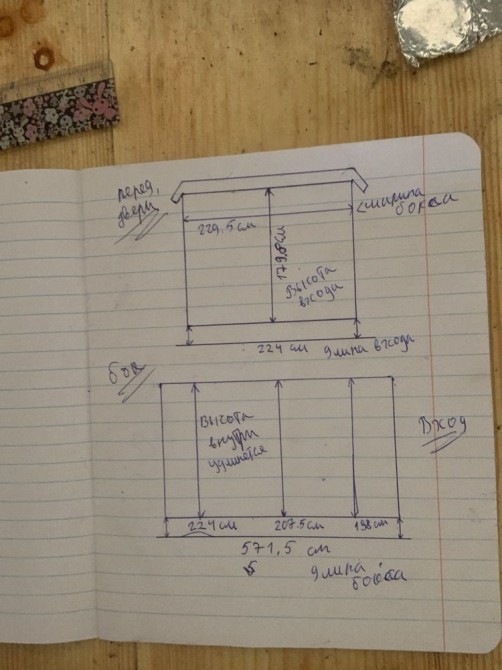 перед,
двери
ширина
бокса
229.5 см
179,8см
Высота
входа
224 см длина входа
бок
Высота
внутри
удиняется
Вход
224 см 207.5см 198 см
571,5 см
длина
бокса